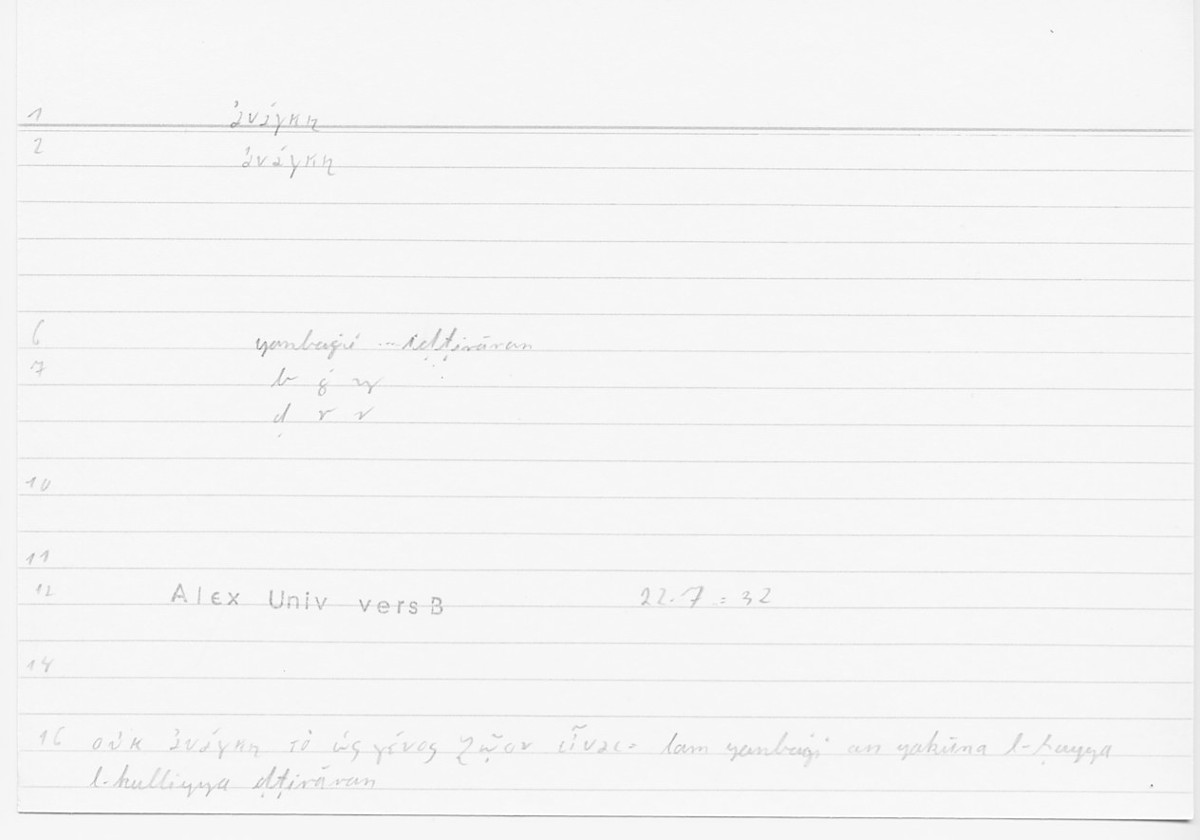 1 ἀνάγκη
2 ἀνάγκη
6 yanbaġī ... iḍṭirāran
7 b ġ y
ḍ r r
10
11
12 Alex Univ vers B 22.7 = 32
14
16 οὐκ ἀνάγκη τὸ ὡς γένος ζῷον εἶναι = lam yanbaġi an yakūna l-ḥayya
l-kulliyya ḍṭirāran